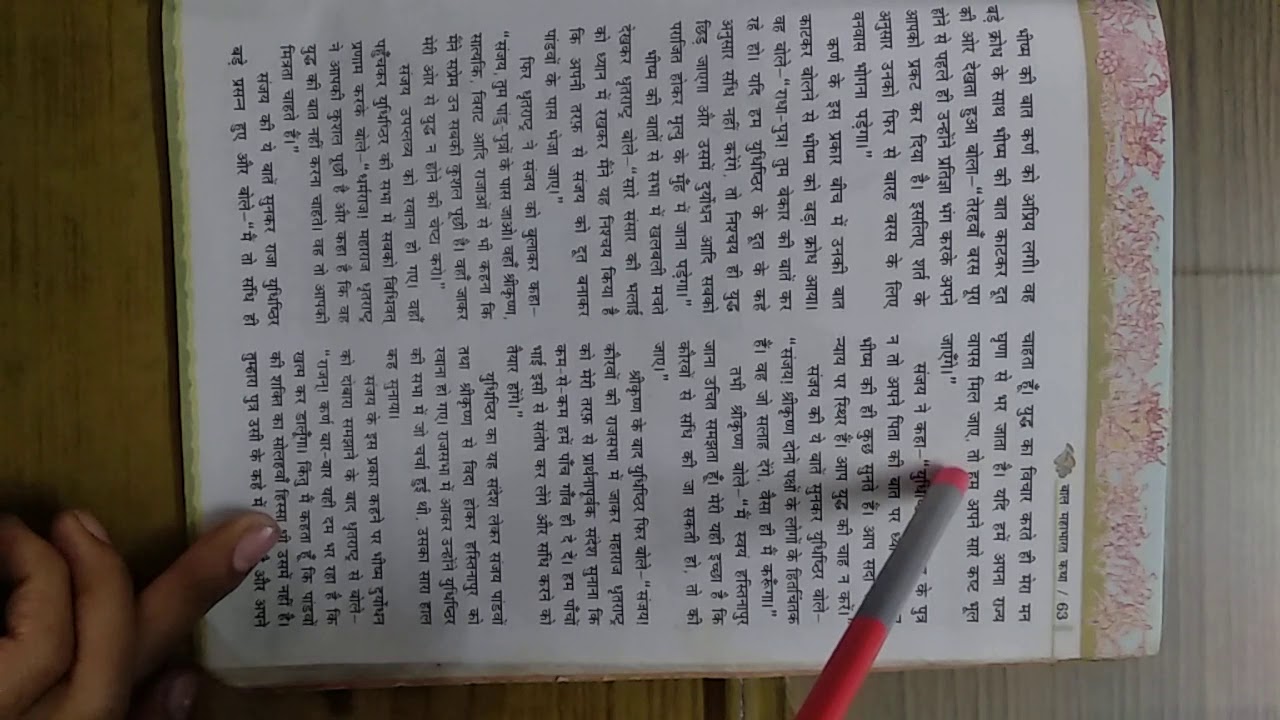 बाल महाभारत कथा / 63
भीष्म की बात कर्ण को अप्रिय लगी। वह
बड़े क्रोध के साथ भीष्म की बात काटकर दूत
की ओर देखता हुआ बोला–"तेरहवाँ बरस पूरा
होने से पहले ही उन्होंने प्रतिज्ञा भंग करके अपने
आपको प्रकट कर दिया है। इसलिए शर्त के
अनुसार उनको फिर से बारह बरस के लिए
वनवास भोगना पड़ेगा।"
कर्ण के इस प्रकार बीच में उनकी बात
काटकर बोलने से भीष्म को बड़ा क्रोध आया।
वह बोले–"राधा-पुत्र! तुम बेकार की बातें कर
रहे हो। यदि हम युधिष्ठिर के दूत के कहे
अनुसार संधि नहीं करेंगे, तो निश्चय ही युद्ध
छिड़ जाएगा और उसमें दुर्योधन आदि सबको
पराजित होकर मृत्यु के मुँह में जाना पड़ेगा।"
भीष्म की बातों से सभा में खलबली मचते
देखकर धृतराष्ट्र बोले–"सारे संसार की भलाई
को ध्यान में रखकर मैंने यह निश्चय किया है
कि अपनी तरफ़ से संजय को दूत बनाकर
पांडवों के पास भेजा जाए।"
फिर धृतराष्ट्र ने संजय को बुलाकर कहा–
"संजय, तुम पांडु-पुत्रों के पास जाओ। वहाँ श्रीकृष्ण,
सात्यकि, विराट आदि राजाओं से भी कहना कि
मैंने सप्रेम उन सबकी कुशल पूछी है। वहाँ जाकर
मेरी ओर से युद्ध न होने की चेष्टा करो।"
संजय उपप्लव्य को रवाना हो गए। वहाँ
पहुँचकर युधिष्ठिर की सभा में सबको विधिवत्
प्रणाम करके बोले–"धर्मराज! महाराज धृतराष्ट्र
ने आपकी कुशल पूछी है और कहा है कि वह
युद्ध की बात नहीं करना चाहते। वह तो आपकी
मित्रता चाहते हैं।"
संजय की ये बातें सुनकर राजा युधिष्ठिर
बड़े प्रसन्न हुए और बोले–"मैं तो संधि ही
चाहता हूँ। युद्ध का विचार करते ही मेरा मन
घृणा से भर जाता है। यदि हमें अपना राज्य
वापस मिल जाए, तो हम अपने सारे कष्ट भूल
जाएँगे।"
संजय ने कहा– के पुत्र
न तो अपने पिता की बात पर
भीष्म की ही कुछ सुनते हैं। आप सदा
न्याय पर स्थिर हैं। आप युद्ध की चाह न करें।"
संजय की ये बातें सुनकर युधिष्ठिर बोले–
"संजय! श्रीकृष्ण दोनों पक्षों के लोगों के हितचिंतक
हैं। वह जो सलाह देंगे, वैसा ही मैं करूँगा।"
तभी श्रीकृष्ण बोले–"मैं स्वयं हस्तिनापुर
जाना उचित समझता हूँ। मेरी यही इच्छा है कि
कौरवों से संधि की जा सकती हो, तो की
जाए।"
श्रीकृष्ण के बाद युधिष्ठिर फिर बोले–"संजय!
कौरवों की राजसभा में जाकर महाराज धृतराष्ट्र
को मेरी तरफ़ से प्रार्थनापूर्वक संदेश सुनाना कि
कम-से-कम हमें पाँच गाँव ही दे दें। हम पाँचों
भाई इसी से संतोष कर लेंगे और संधि करने को
तैयार होंगे।"
युधिष्ठिर का यह संदेश लेकर संजय पांडवों
तथा श्रीकृष्ण से विदा होकर हस्तिनापुर को
रवाना हो गए। राजसभा में आकर उन्होंने युधिष्ठिर
की सभा में जो चर्चा हुई थी, उसका सारा हाल
कह सुनाया।
संजय के इस प्रकार कहने पर भीष्म दुर्योधन
को दोबारा समझाने के बाद धृतराष्ट्र से बोले–
"राजन्! कर्ण बार-बार यही दम भर रहा है कि
खत्म कर डालूँगा। किंतु मैं कहता हूँ कि पांडवों
की शक्ति का सोलहवाँ हिस्सा भी उसमें नहीं है।
तुम्हारा पुत्र उसी के कहे में और अपने